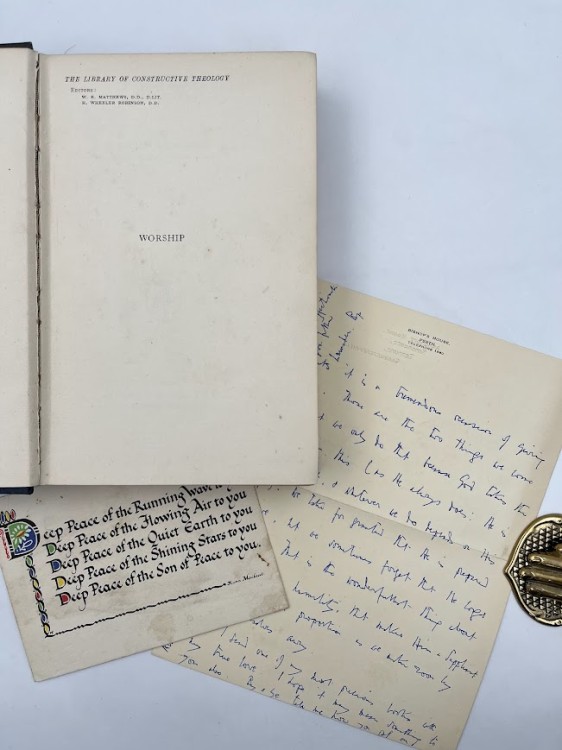 THE LIBRARY OF CONSTRUCTIVE THEOLOGY
EDITORS:
W. R. MATTHEWS, D.D., D.LIT.
H. WHEELER ROBINSON, D.D.
WORSHIP
BISHOP'S HOUSE,
PERTH.
it is a tremendous occasion of giving
These are the two things we come
we only do that because God takes the
this (as He always does: He is
whatever we do depends on His
we take for granted that He is prepared
but we sometimes forget that He
That is the wonderfullest thing about
humility, that makes Him a suppliant
proportion as we make room by
away.
I send one of my most precious books with
my true love. I hope it may mean something to
you also.
Deep Peace of the Running Wave to
Deep Peace of the Flowing Air to you
Deep Peace of the Quiet Earth to you
Deep Peace of the Shining Stars to you
Deep Peace of the Son of Peace to you.